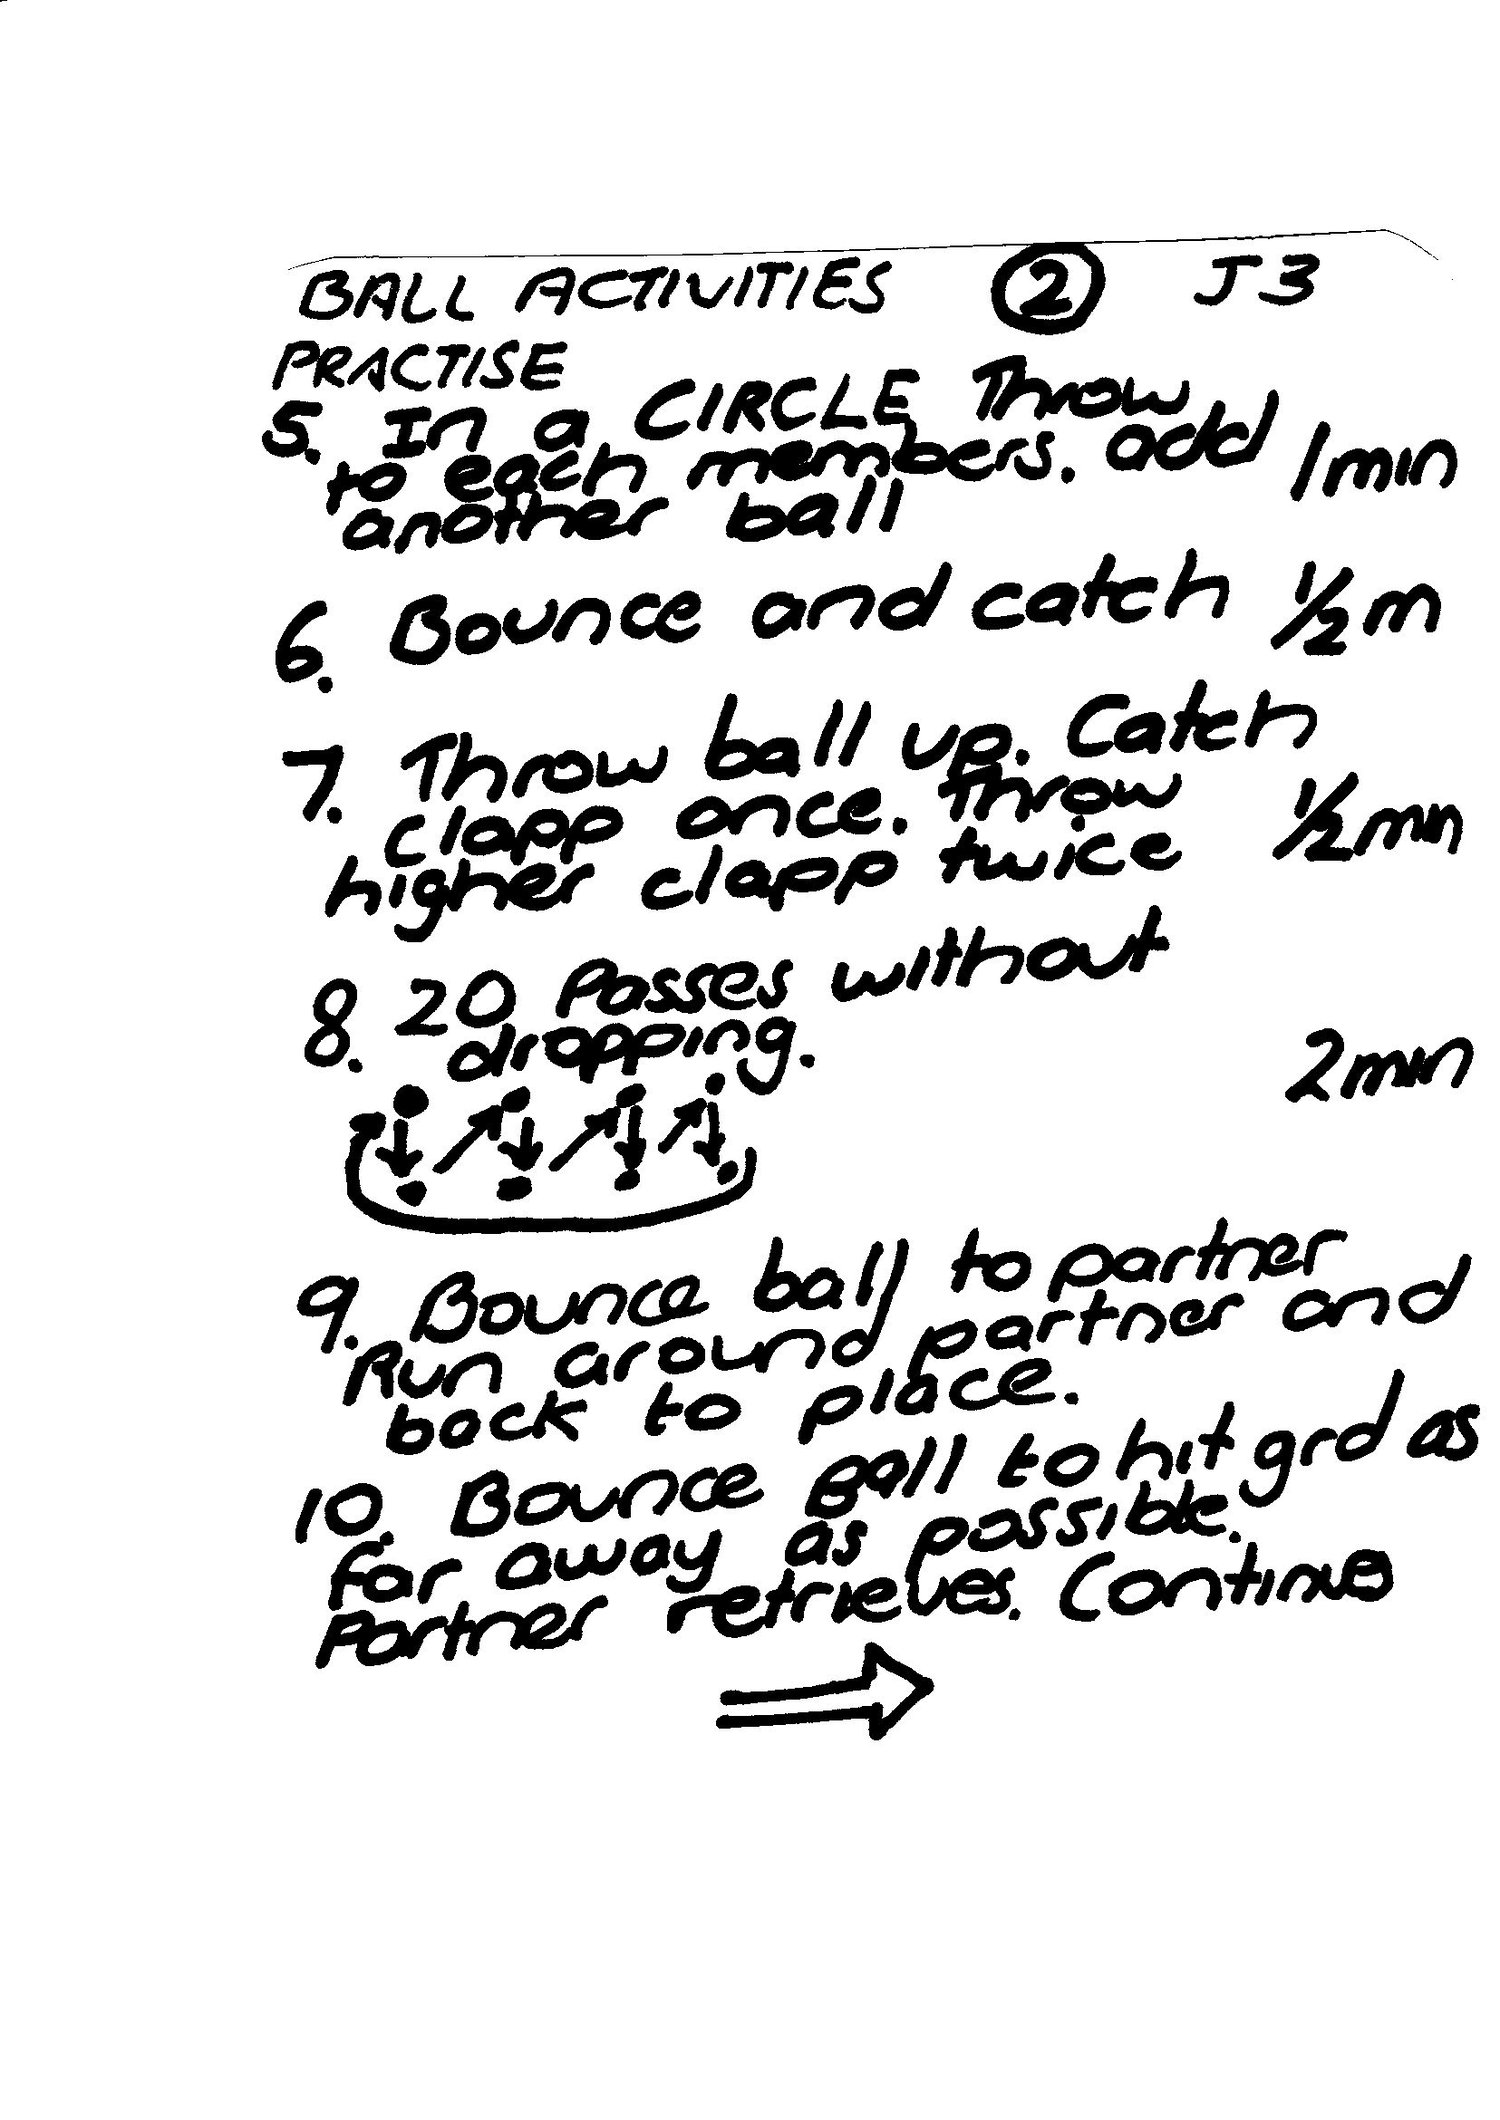 BALL ACTIVITIES ② J3
PRACTISE
5. In a CIRCLE Throw
to each members. add 1min
another ball
6. Bounce and catch ½m
7. Throw ball up. Catch
clapp once. Throw ½min
higher clapp twice
8. 20 Passes without
dropping. 2min
9. Bounce ball to partner
Run around partner and
back to place.
10. Bounce Ball to hit grd as
far away as possible.
Partner retrieves. Continue